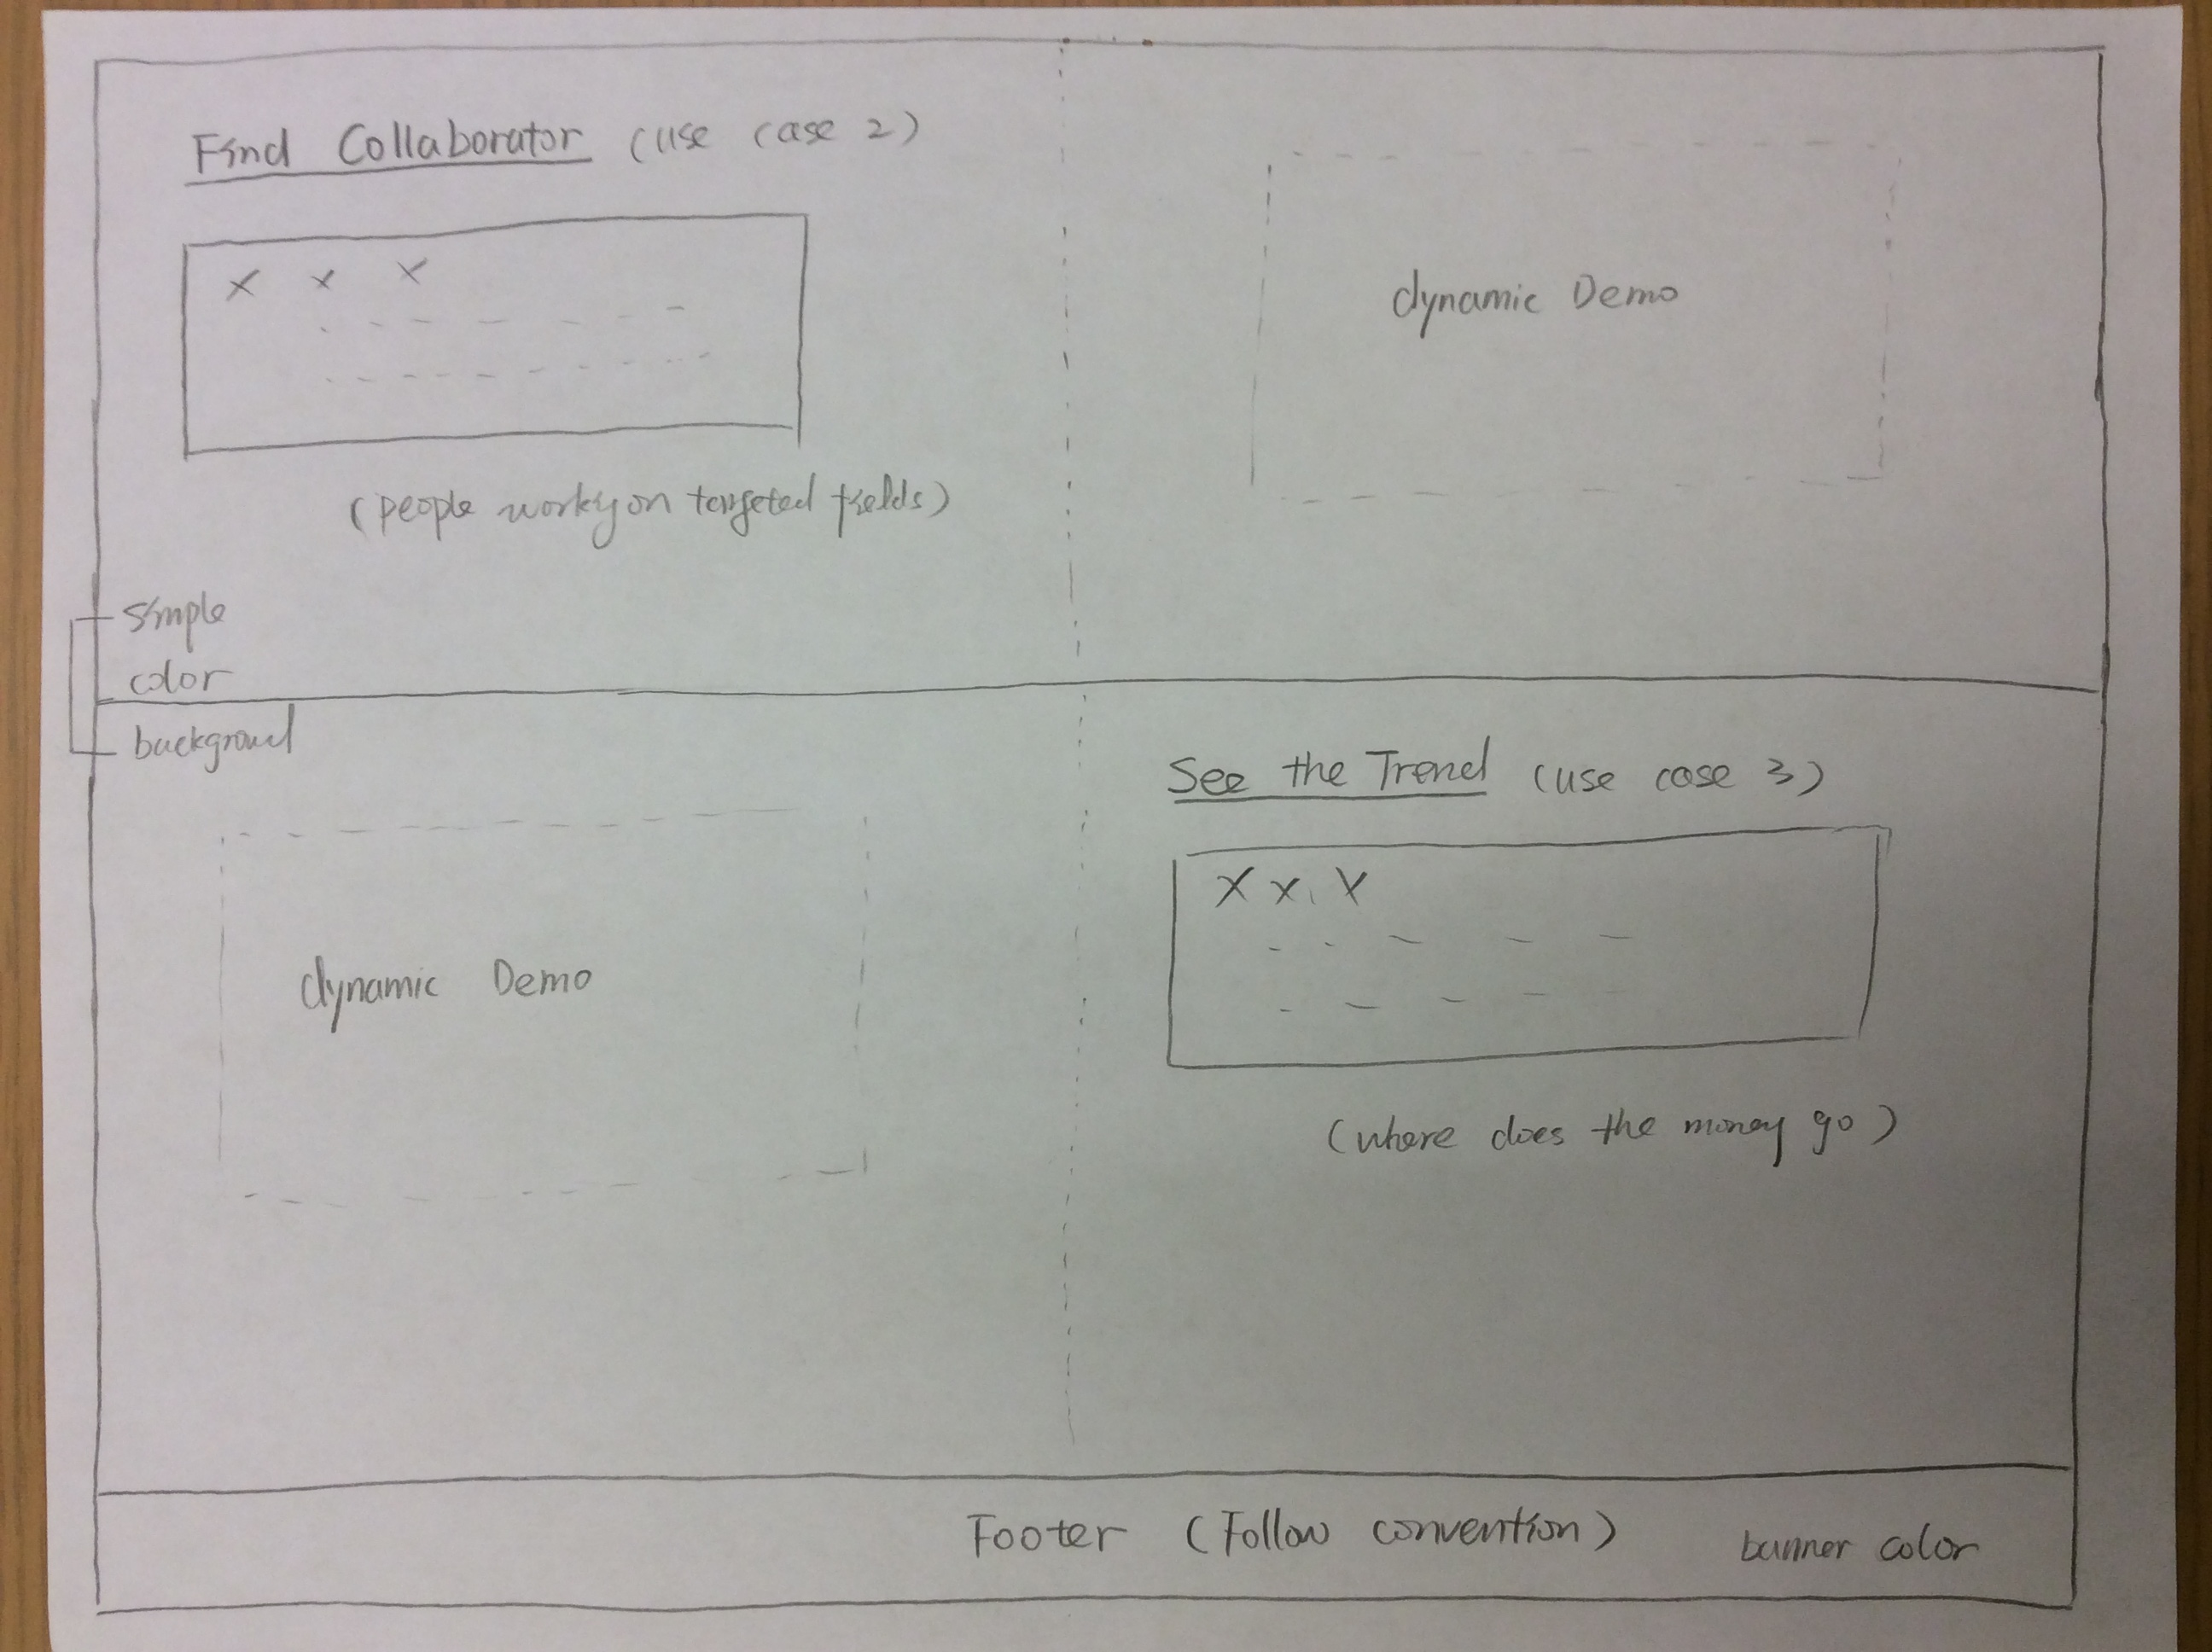 Find Collaborator (use case 2)
x x x
(people working on targeted fields)
dynamic Demo
simple
color
background
dynamic Demo
See the Trend (use case 3)
X X X
(where does the money go)
Footer (Follow convention) banner color